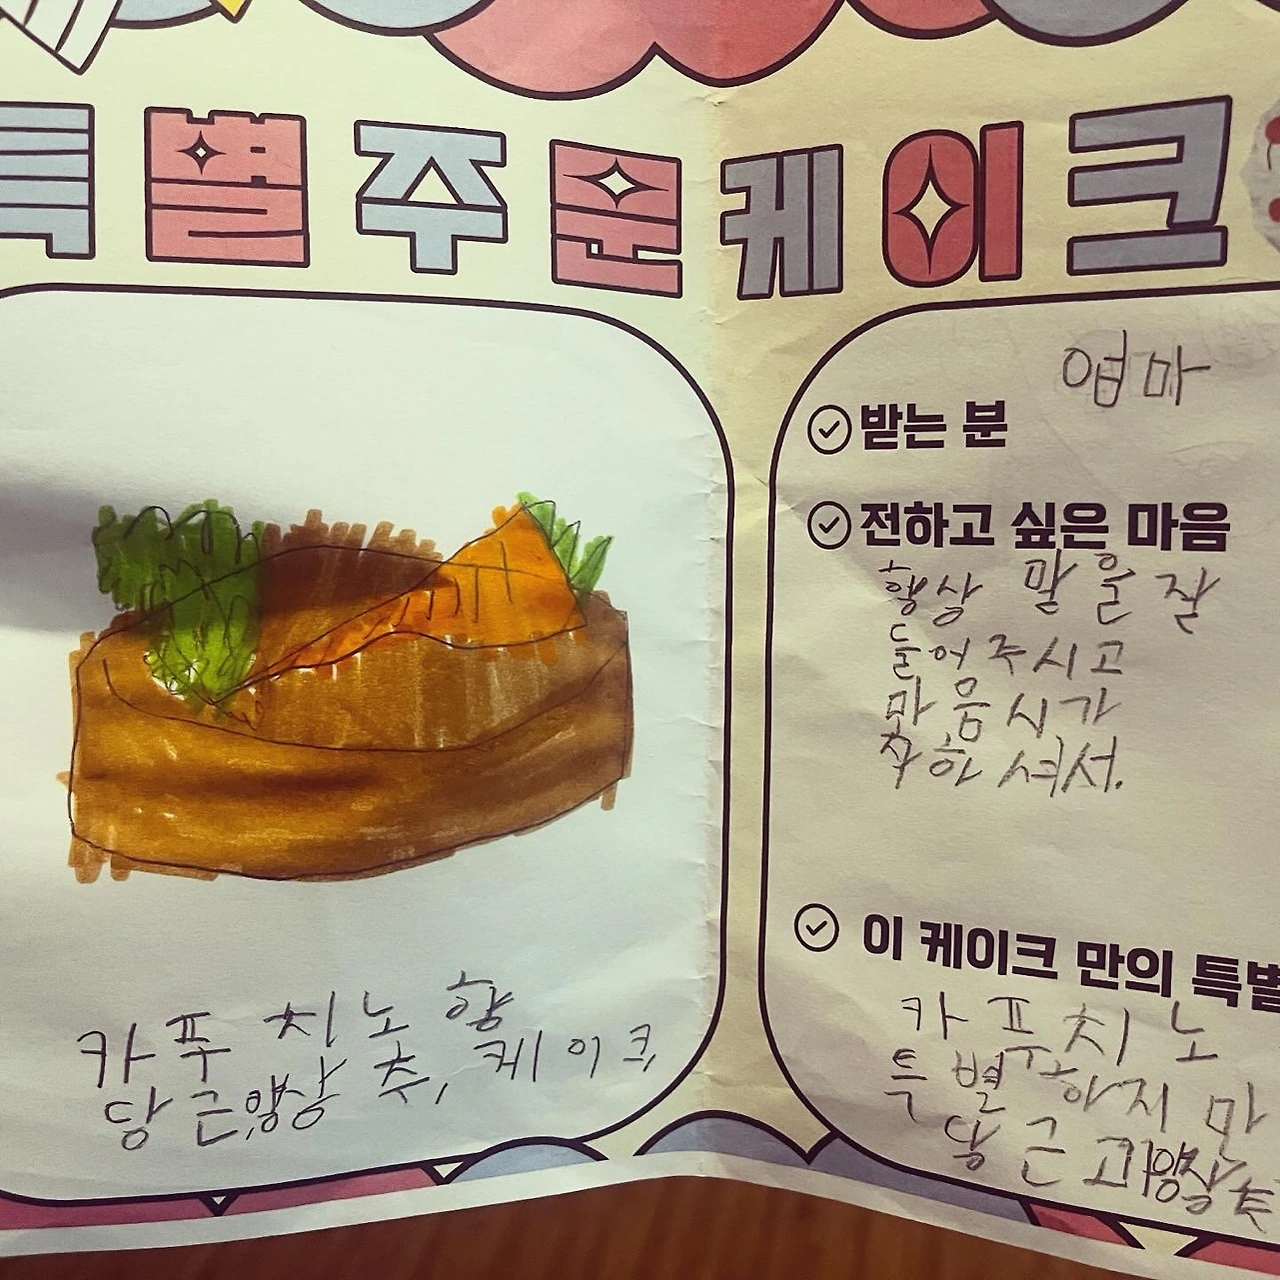 특별주문케이크
카푸치노향
당근,양상추,케이크
엄마
받는 분
전하고 싶은 마음
항상 말을 잘
들어주시고
마음시가
착하셔서.
이 케이크 만의 특별
카푸치노
특별하지만
당근고